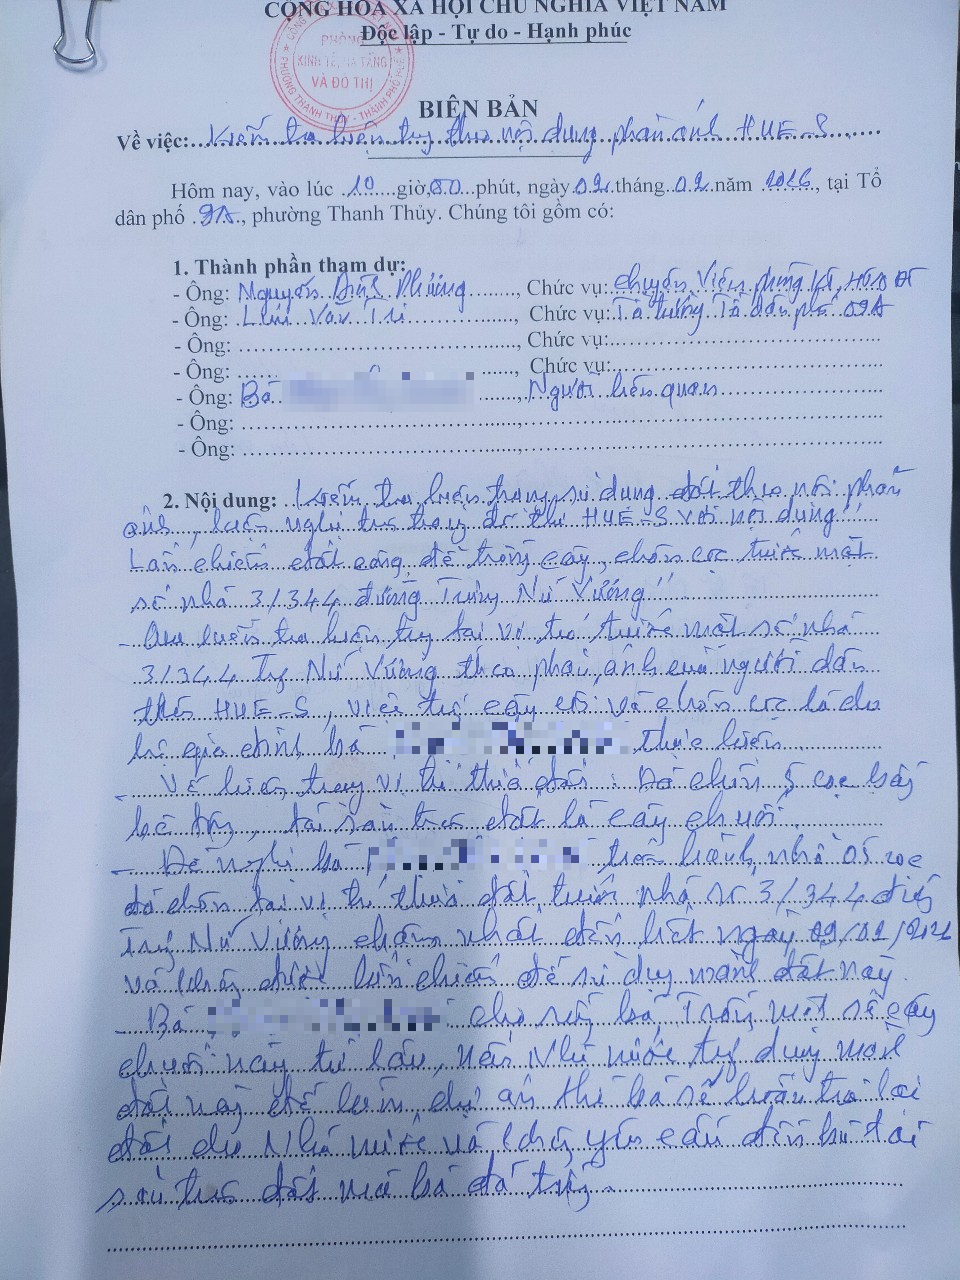 CỘNG HÒA XÃ HỘI CHỦ NGHĨA VIỆT NAM
Độc lập - Tự do - Hạnh phúc
PHÒNG
KINH TẾ, HẠ TẦNG
VÀ ĐÔ THỊ
PHƯỜNG THANH THỦY - THÀNH PHỐ HUẾ
BIÊN BẢN
Về việc: Kiểm tra hiện trạng theo nội dung phản ánh HUE-S
Hôm nay, vào lúc 10 giờ, 00 phút, ngày 02 tháng 02 năm 2026, tại Tổ
dân phố 9A, phường Thanh Thủy. Chúng tôi gồm có:
1. Thành phần tham dự:
- Ông: Nguyễn, Chức vụ: Chuyên viên phòng KT, HT&ĐT
- Ông: Văn Trí, Chức vụ: Tổ trưởng Tổ dân phố 09A
- Ông:, Chức vụ:
- Ông:, Chức vụ:
- Ông: Bà, Người liên quan
- Ông:
- Ông:
2. Nội dung: Kiểm tra hiện trạng sử dụng đất theo nội phản
ánh, kiến nghị trên đô thị HUE-S với nội dung "
Lấn chiếm đất công để trồng cây, chôn cọc trước mặt
số nhà 3/344 đường Trưng Nữ Vương"
- Qua kiểm tra hiện trạng tại vị trí trước mặt số nhà
3/344 Trưng Nữ Vương theo phản ánh của người dân
trên HUE-S, việc trồng cây cối và chôn cọc là do
hộ gia đình bà thực hiện
- Về hiện trạng vị trí thửa đất: Đã chôn 5 cọc bằng
bê tông, tài sản trên đất là cây chuối.
- Đề nghị bà nhổ 05 cọc
đã chôn tại vị trí thửa đất trước nhà số 3/344 đường
Trưng Nữ Vương chậm nhất đến hết ngày 09/02/2026
và không được lấn chiếm để sử dụng mảnh đất này
- Bà cho rằng bà trồng một số cây
chuối này từ lâu, nếu Nhà nước sử dụng mảnh
đất này để làm dự án thì bà sẽ hoàn trả lại
đất cho Nhà nước và không yêu cầu đền bù tài
sản trên đất mà bà đã trồng.